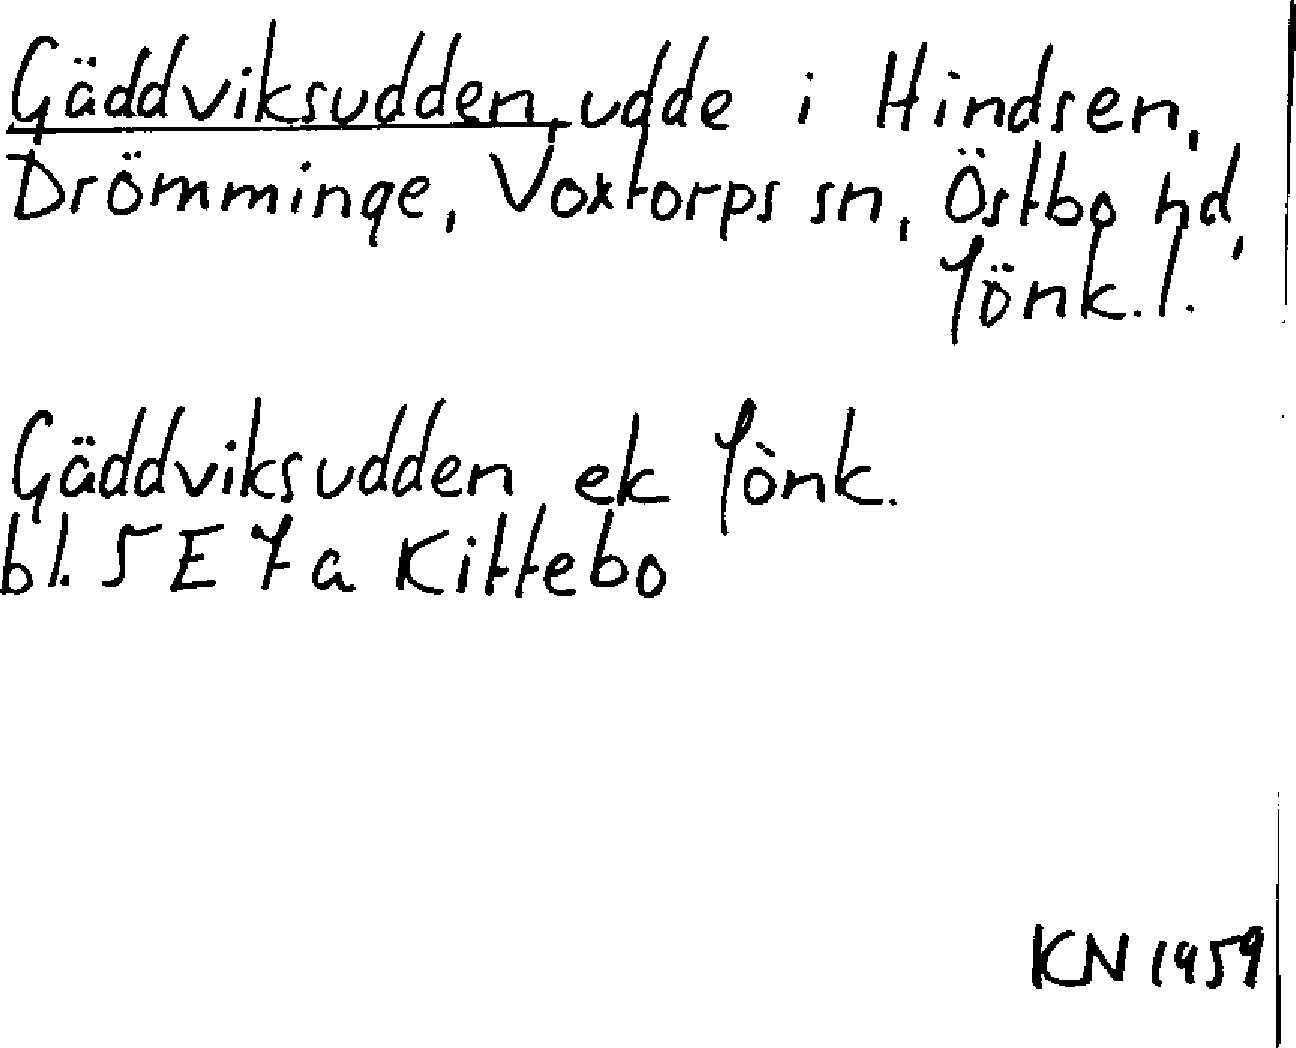 Gäddviksudden, udde i Hindsen,
Drömminge, Voxtorps sn, Östbo hd,
Jönk. l.
Gäddviksudden ek Jönk.
bl. 5 E 7 a Kittebo
KN 1959